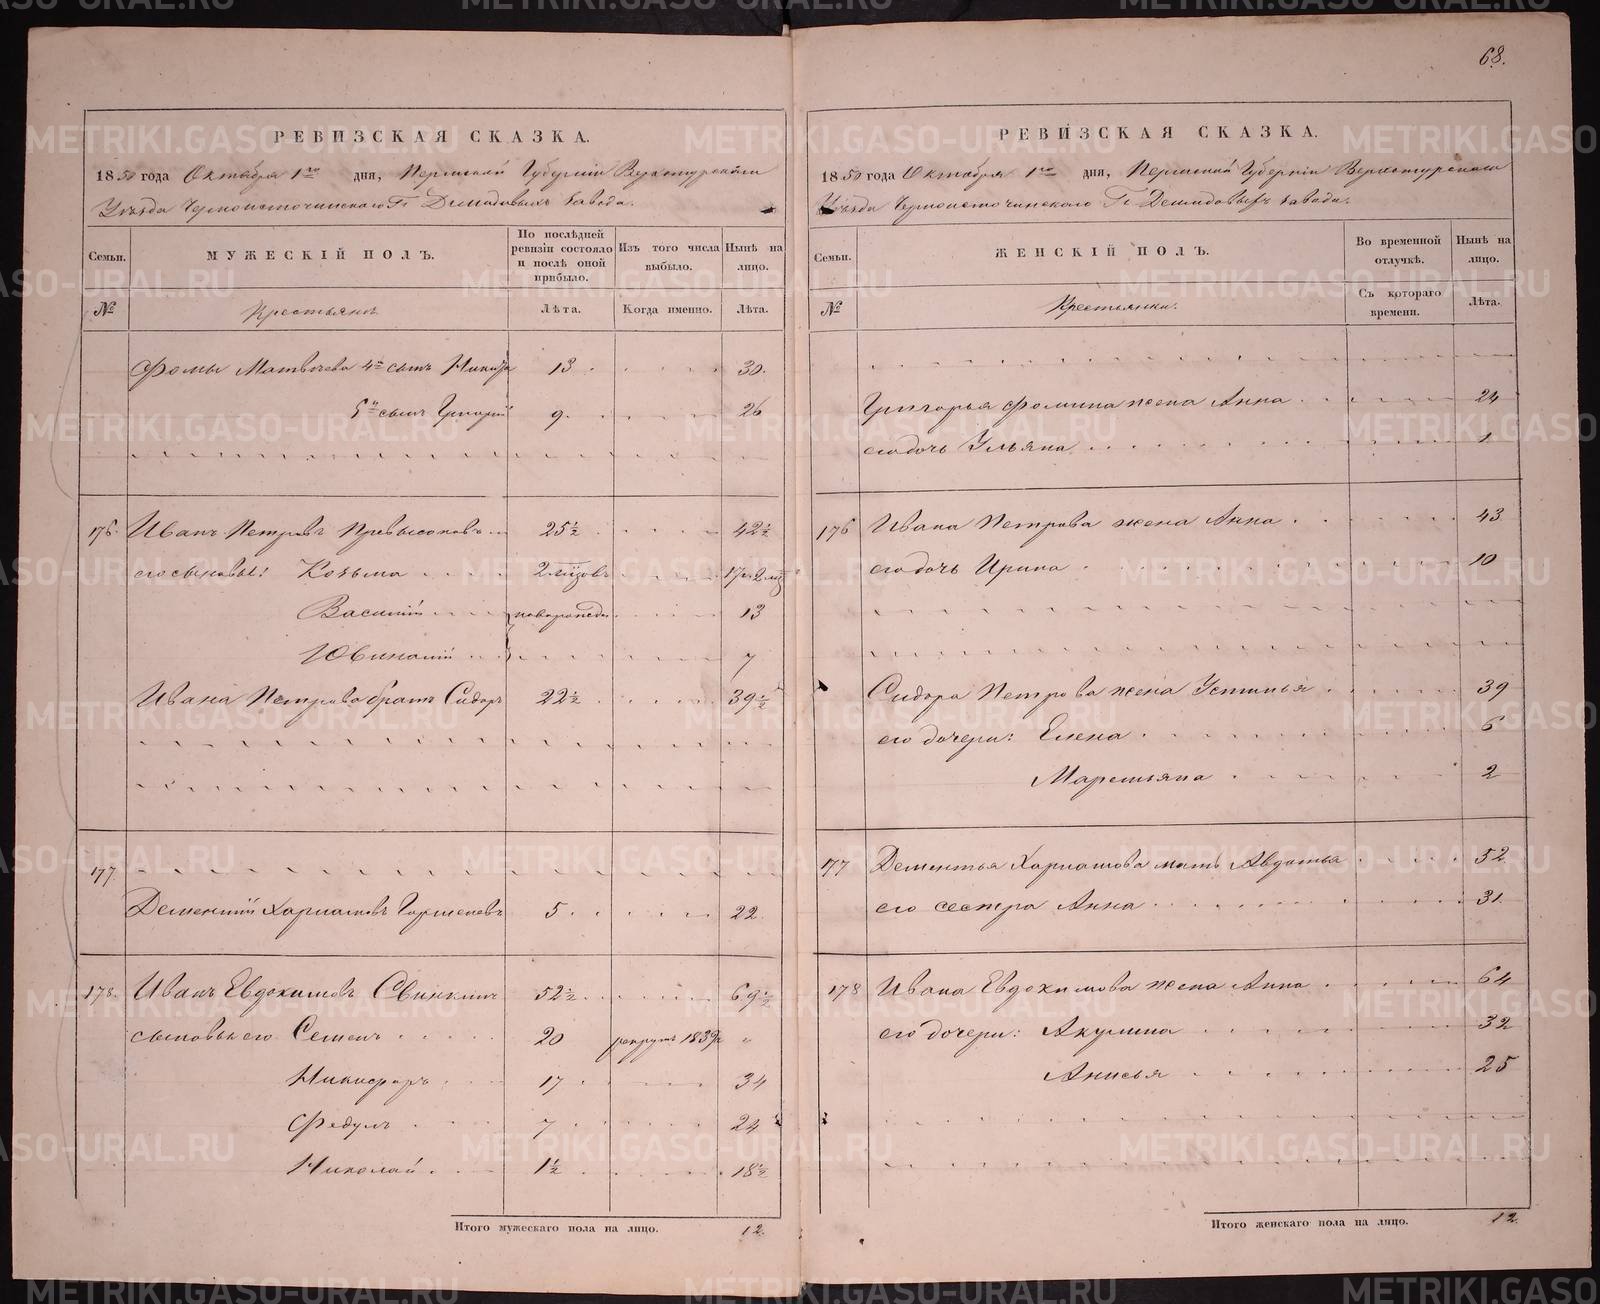 68.
РЕВИЗСКАЯ СКАЗКА.
1850 года Октября 1го дня, Пермской Губернiи Верхотурскаго
Уѣзда Черноисточинскаго Гг Демидовыхъ завода.
Семьи.
МУЖЕСКІЙ ПОЛЪ.
По послѣдней ревизіи состояло и послѣ оной прибыло.
Изъ того числа выбыло.
Нынѣ на лицо.
№
Крестьянъ.
Лѣта.
Когда именно.
Лѣта.
Фомы Матвѣева 4й сынъ 13 30.
5й сынъ Григорій 9. 26
176. Иванъ Петровъ 25½ 42½
его сыновья: Козьма 2 мѣсяцовъ 17 л. 2 м.
Василій новорожден. 13
Ювиналій 7
Ивана Петрова братъ Сидоръ 22½ 39½
177.
Дементій Харламовъ 5 22.
178. Иванъ Евдокимовъ Свинкинъ 52½ 69½
сыновья его Семенъ 20 рекрутъ 1839 г. "
Никифоръ 17 34
Федулъ 7 24
Николай 1½ 18½
Итого мужескаго пола на лицо. 12.
РЕВИЗСКАЯ СКАЗКА.
1850 года Октября 1го дня, Пермской Губернiи Верхотурскаго
Уѣзда Черноисточинскаго Гг Демидовыхъ завода.
Семьи.
ЖЕНСКІЙ ПОЛЪ.
Во временной отлучкѣ.
Нынѣ на лицо.
№
Крестьянки.
Съ котораго времени.
Лѣта.
Григорья Фомина жена Анна 24
его дочь Ульяна 1
176 Ивана Петрова жена Анна 43
его дочь Ирина 10
Сидора Петрова жена Устинья 39
его дочери: Елена 6
Маремьяна 2
177 Дементья Харламова мать Авдотья 52
его сестра Анна 31.
178 Ивана Евдокимова жена Анна 64
его дочери: Акулина 32
Анисья 25
Итого женскаго пола на лицо. 12.
METRIKI.GASO-URAL.RU